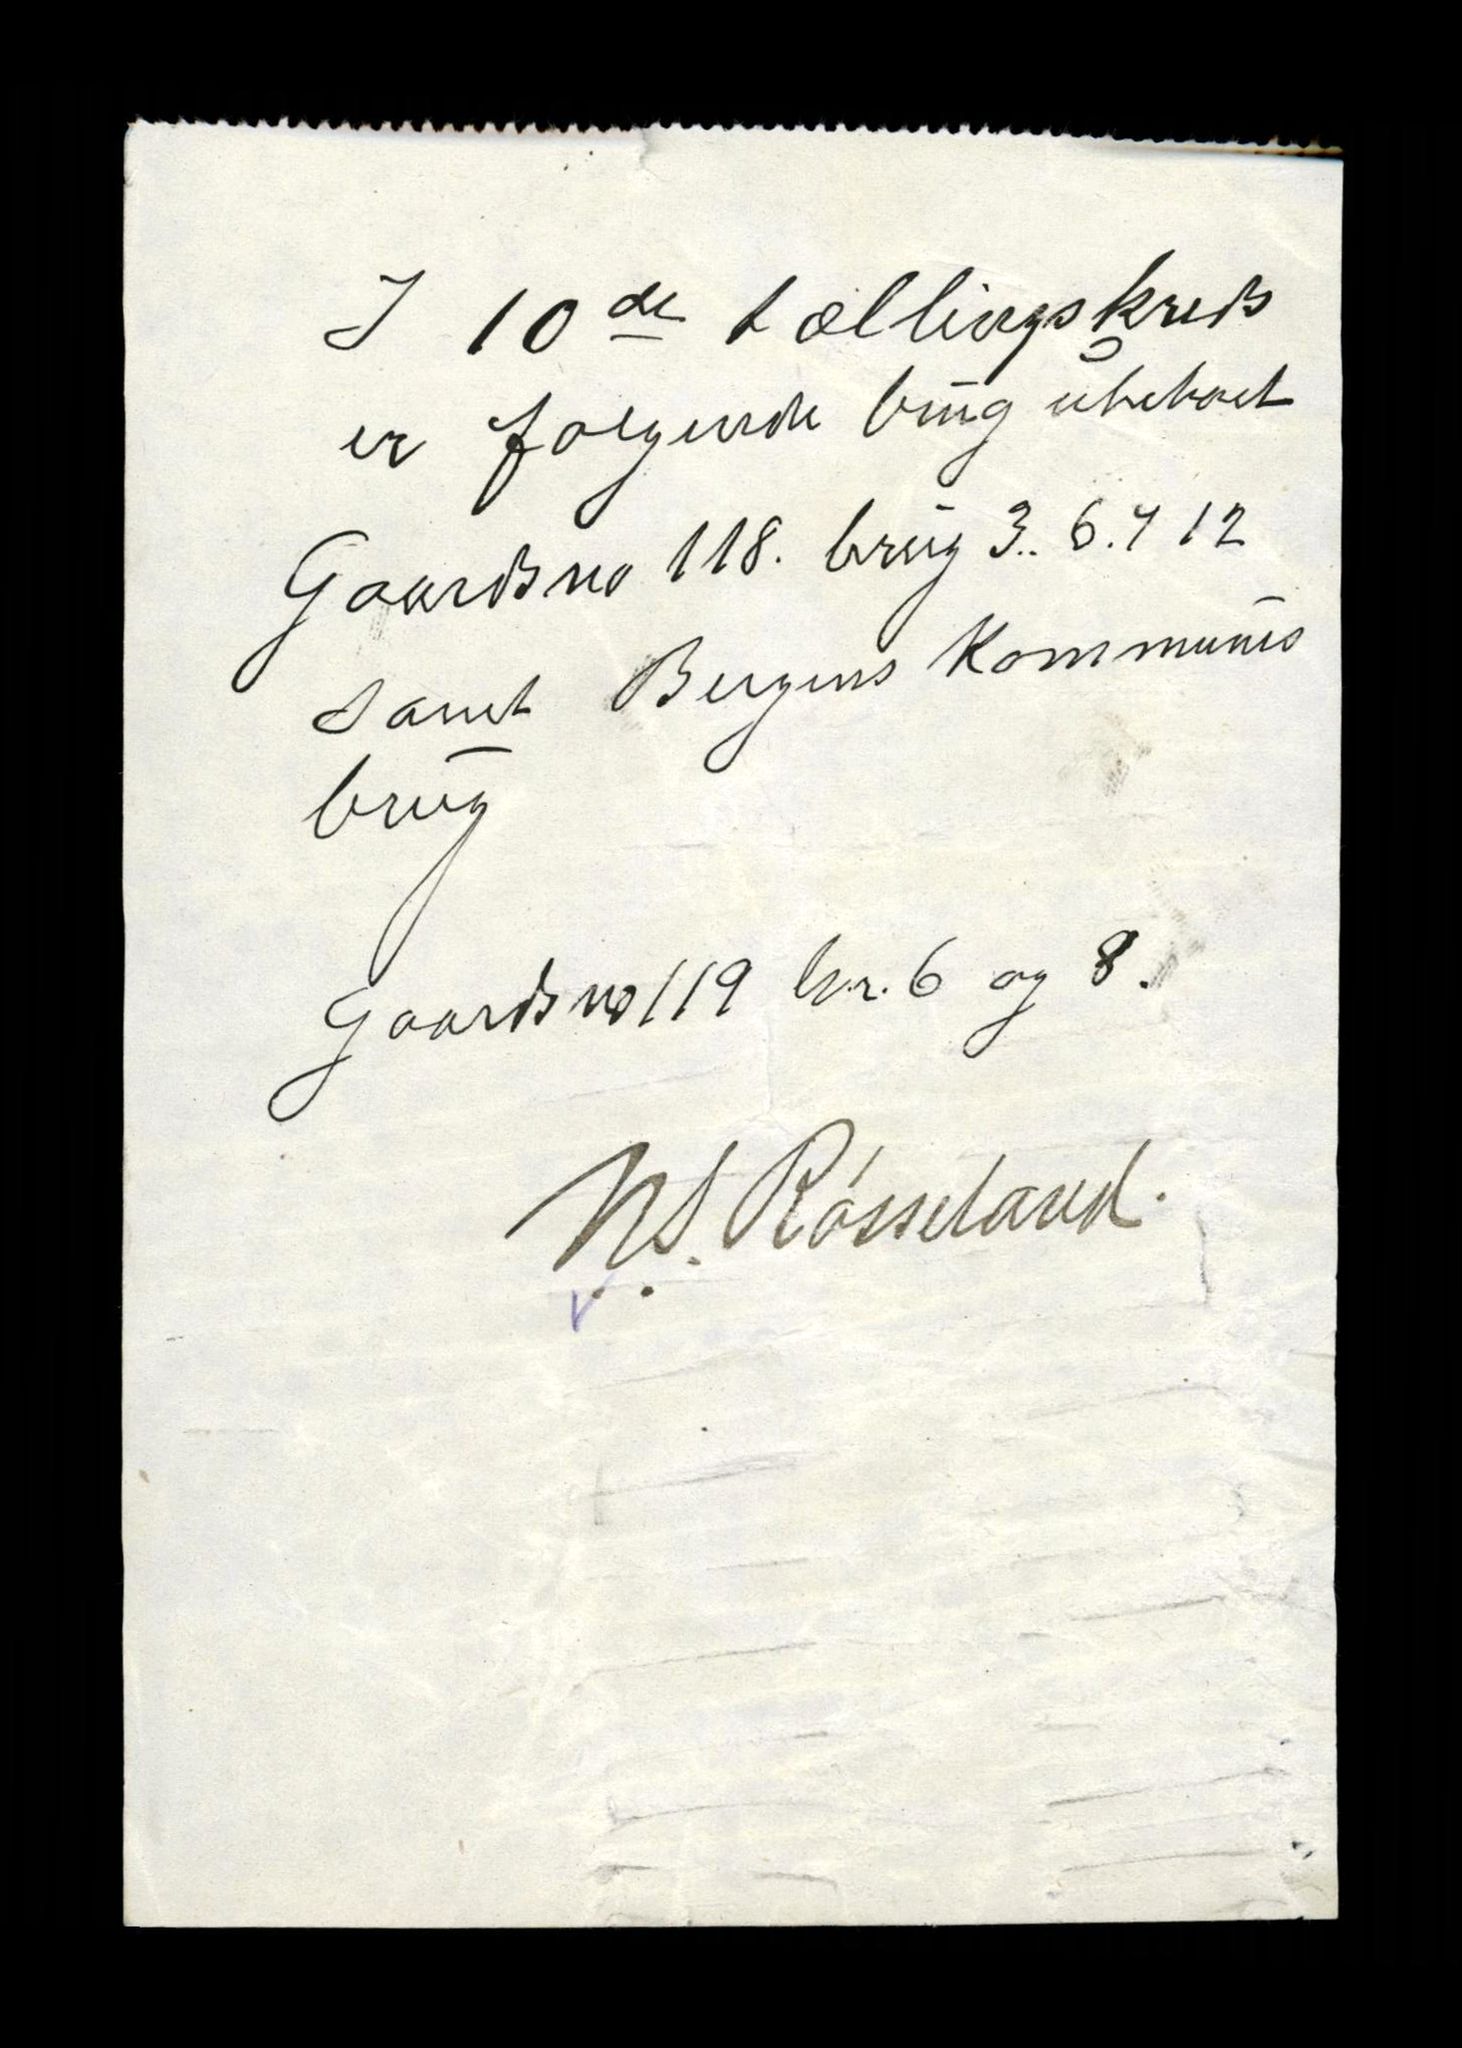 I 10de tællingskreds
er følgende brug ubeboet
Gaardsno 118. brug 3.. 6. 7 12
samt Bergens Kommunes
brug
Gaardsno 119 br. 6 og 8.
N. S. Røsseland.